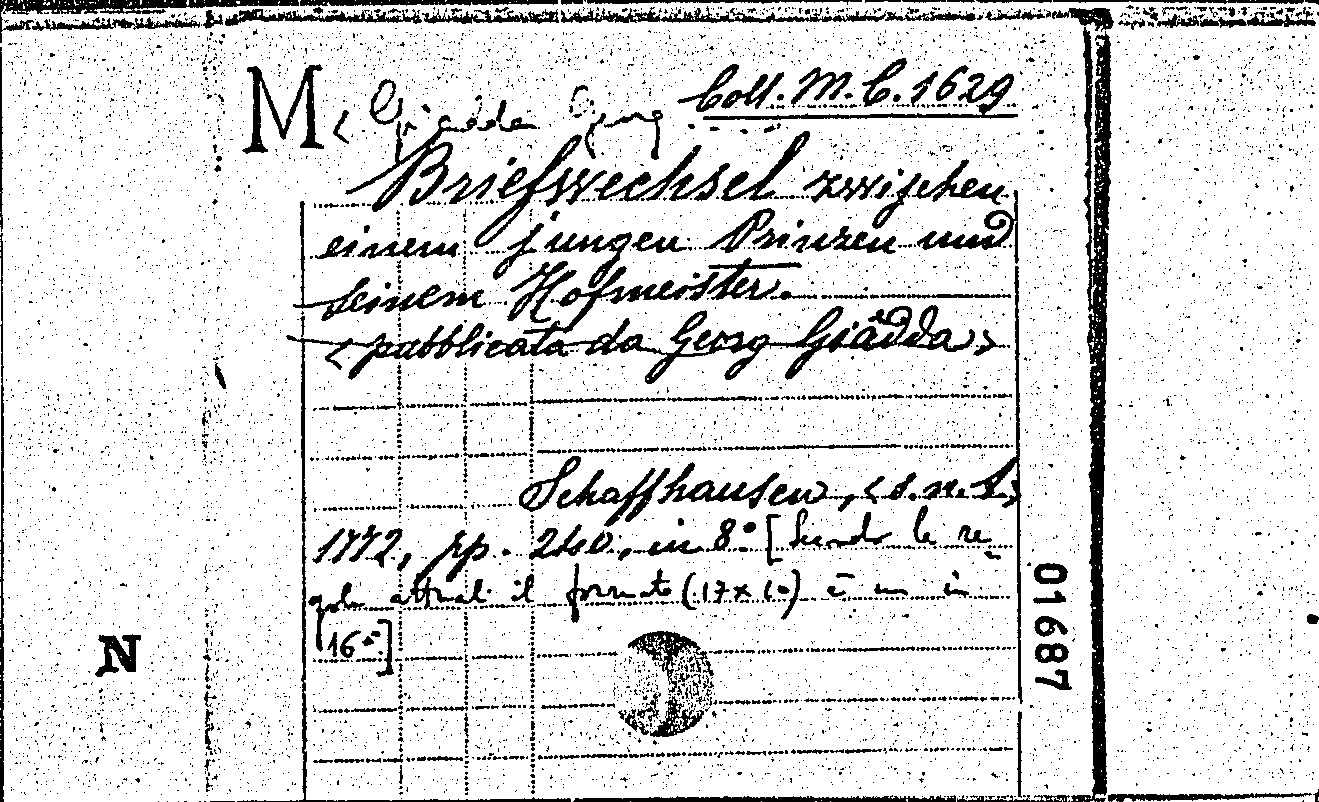 M < Giädda Georg Coll. M. C. 1629
Briefwechsel zwischen
einem jungen Prinzen und
seinem Hofmeister.
< pubblicata da Georg Giädda >
Schaffhausen, < s. n. t. >
1772, pp. 240, in 8° [secondo le re-
gole attuali il formato (17 x 10) è un in
16°]
01687
N